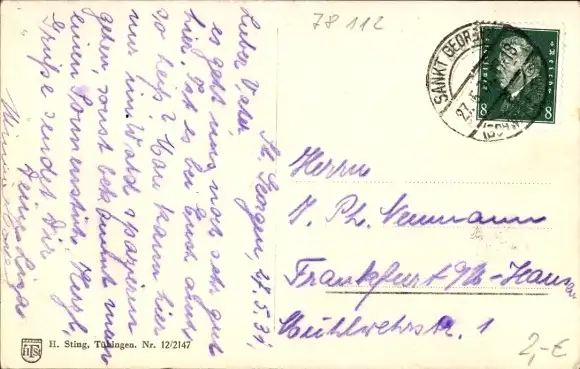 78 112
St. Georgen, 27.5.31,
Lieber Vater,
es geht uns noch sehr gut
hier. Hat es bei Euch auch
so heiß? Man kann hier
nur im Wald spazieren
gehen, sonst bekommt man
einen Sonnenstich. Herzl.
Grüße sendet Dir
Deine
SANKT GEORGEN
27.5.
(SCHWARZW
Deutsches Reich
8 8
Herrn
J. Ph. Neumann
Frankfurt a/M-Hausen
Mühlwehrstr. 1
2,-€
HSt
H. Sting, Tübingen. Nr. 12/2147